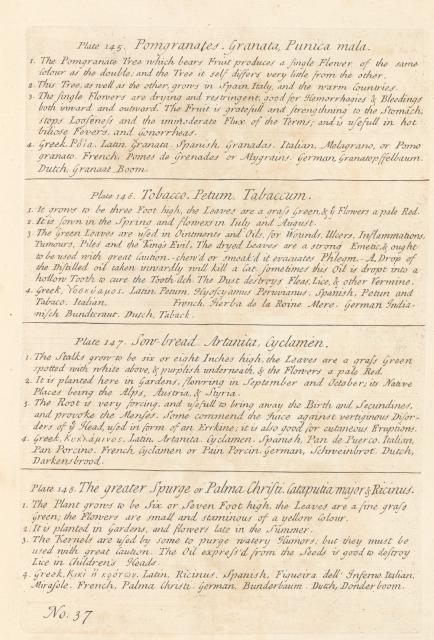 Plate 145. Pomgranates. Granata, Punica mala.
1. The Pomgranate Tree which bears Fruit produces a single Flower of the same
Colour as the double; and the Tree it self differs very little from the other.
2. This Tree, as well as the other, grows in Spain, Italy, and the warm Countries.
3. The single Flowers are drying and restringent, good for Hemorrhogies & Bleedings
both inward and outward. The Fruit is gratefull and strengthning to the Stomach,
stops Looseness and the immoderate Flux of the Terms; and is usefull in hot
bilious Fevers, and Gonorrheas.
4. Greek, Ρόια. Latin, Granata. Spanish, Granadas. Italian, Melagrano, or Pomo
granato. French, Pomes de Grenades or Mygrains. German, Granatopffelbaum.
Dutch, Granaat Boom.
Plate 146. Tobacco. Petum. Tabaccum.
1. It grows to be three Foot high, the Leaves are a grass Green, & ye Flowers a pale Red.
2. It is sown in the Spring and flowers in July and August.
3. The Green Leaves are used in Ointments and Oils, for Wounds, Ulcers, Inflammations,
Tumours, Piles and the King's Evil, The dryed Leaves are a strong Emetic, & ought
to be used with great caution - chew'd or smoak'd it evacuates Phlegm. - A Drop of
the Distilled oil taken inwardly will kill a Cat. sometimes this Oil is dropt into a
hollow Tooth to cure the Tooth Ach. The Dust destroys Fleas, Lice, & other Vermine.
4. Greek, Υοσκύαμος. Latin, Petum, Hyoscyamus Peruvianus. Spanish, Petun and
Tabaco. Italian, French, Herba de la Roine Mere. German, India-
nisch Bundtraut. Dutch, Taback.
Plate 147. Sow-bread. Artanita, Cyclamen.
1. The Stalks grow to be six or eight Inches high, the Leaves are a grass Green
spotted with white above, & purplish underneath, & the Flowers a pale Red.
2. It is planted here in Gardens, flowring in September and October; its Native
Places being the Alps, Austria, & Styria.
3. The Root is very forcing, and usefull to bring away the Birth and Secundines,
and provoke the Menses. Some commend the Juice against vertiginous Disor-
ders of ye Head, used in form of an Errhine; it is also good for cutaneous Eruptions.
4. Greek, Κυκλάμινος. Latin, Artanita. Cyclamen. Spanish, Pan de Puerco. Italian,
Pan Porcino. French, Cyclamen or Pain Porcin. German, Schweinbrot. Dutch,
Darkensbrood.
Plate 148. The greater Spurge or Palma Christi. Cataputia major & Ricinus.
1. The Plant grows to be Six or Seven Foot high, the Leaves are a fine grass
Green; the Flowers are small and staminous of a yellow Colour.
2. It is planted in Gardens, and flowers late in the Summer.
3. The Kernels are used by some to purge watery Humors; but they must be
used with great Caution. The Oil express'd from the Seeds is good to destroy
Lice in Children's Heads.
4. Greek, Κίκι ἤ κρότων. Latin, Ricinus. Spanish, Figueira dell' Inferno. Italian,
Mirasole. French, Palma Christi. German, Bunderbaum. Dutch, Donderboom.
No. 37